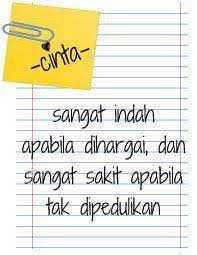 -cinta-
sangat indah
apabila dihargai, dan
sangat sakit apabila
tak dipedulikan